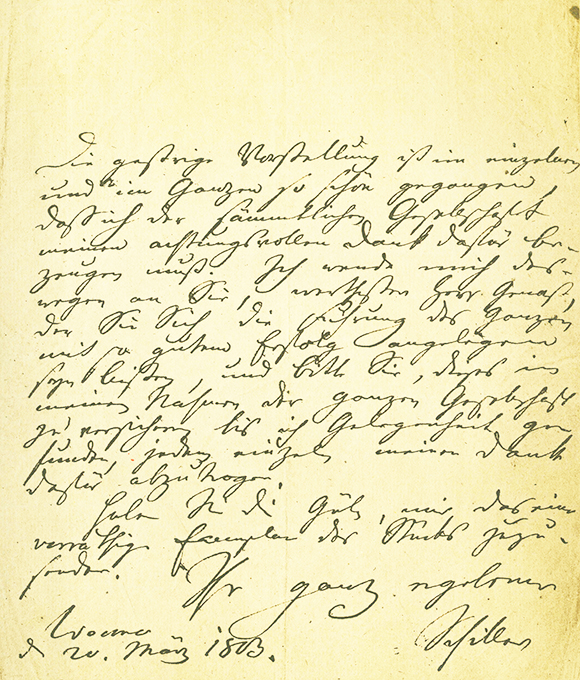 Die gestrige Vorstellung ist im einzelnen
und im Ganzen so schön gegangen,
daß ich der sämmtlichen Gesellschaft
meinen achtungsvollen Dank dafür be-
zeugen muß. Ich wende mich des-
wegen an Sie, werthester Herr Genast,
der Sie Sich die Führung des Ganzen
mit so gutem Erfolg angelegen
seyn ließen, und bitte Sie, dieses in
meinem Nahmen der ganzen Gesellschaft
zu versichern bis ich Gelegenheit ge-
funden, jedem einzeln meinen Dank
dafür abzutragen.
Haben Sie die Güte, mir das eine
vorräthige Exemplar des Stücks zuzu-
senden. Ihr ganz ergebener
Weimar
d 20. März 1803. Schiller